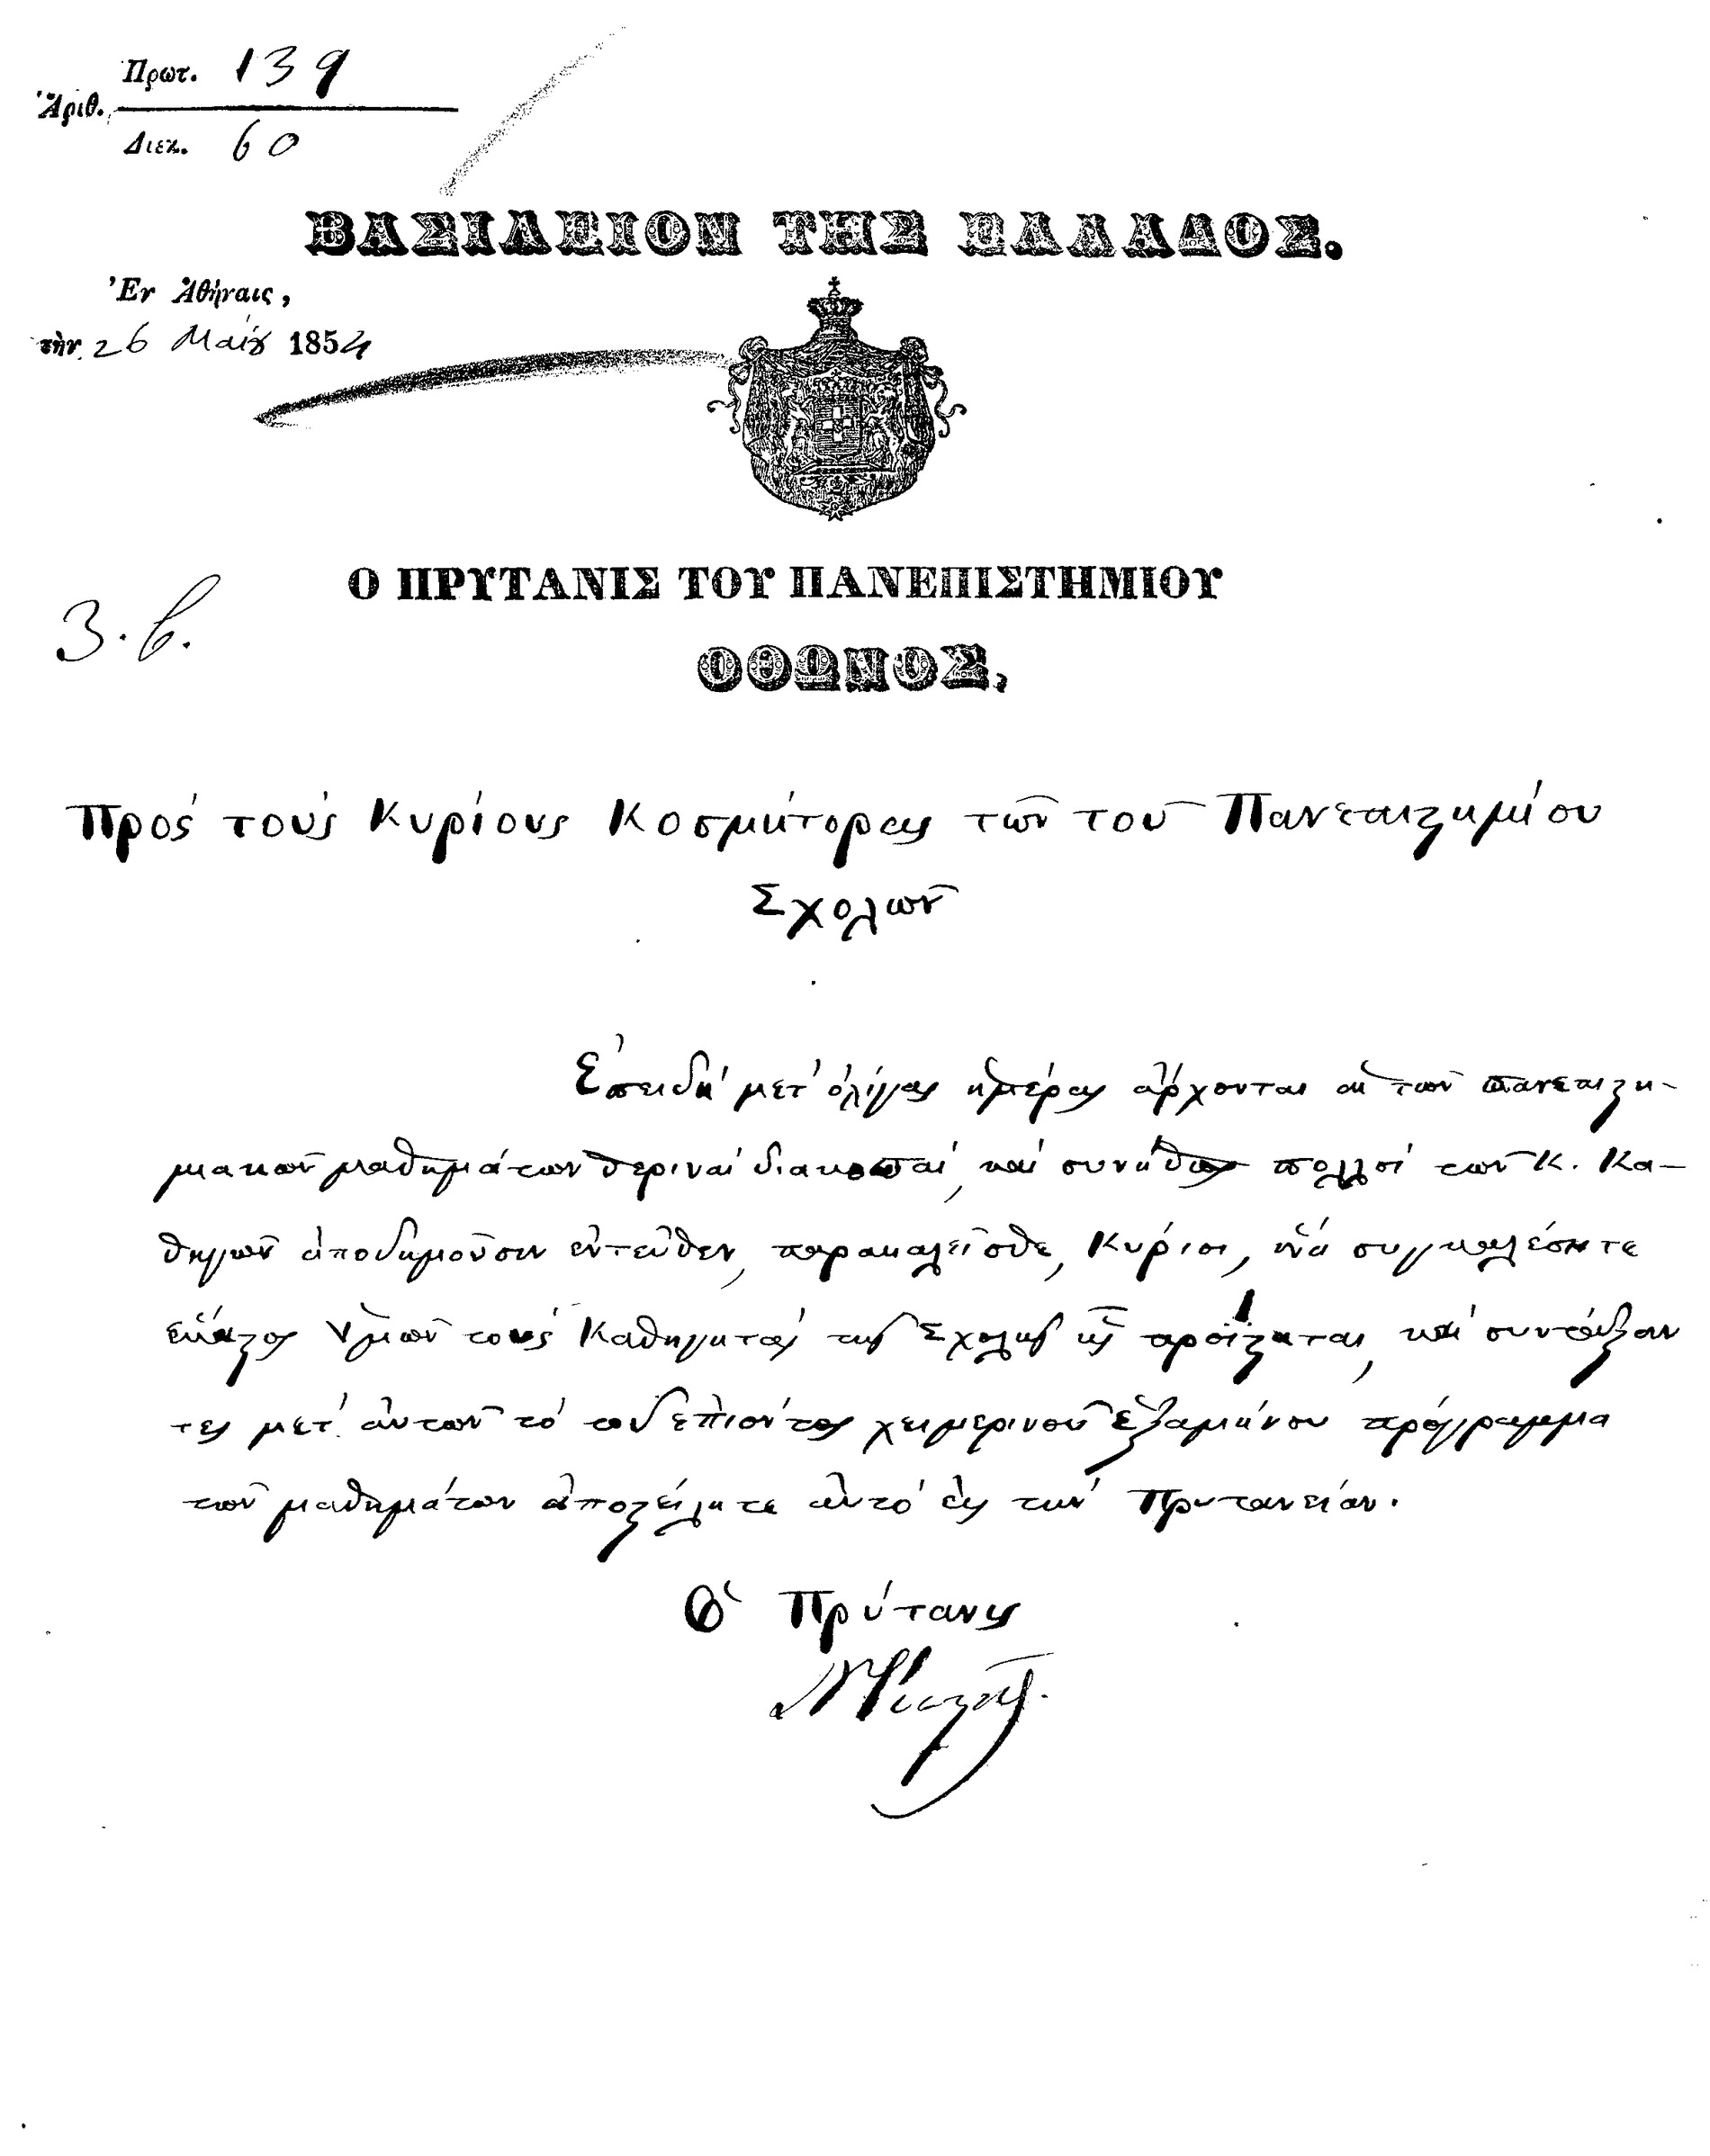 Πρωτ. 139
Ἀριθ.
Διεκ. 60
ΒΑΣΙΛΕΙΟΝ ΤΗΣ ΕΛΛΑΔΟΣ.
Ἐν Ἀθήναις,
τὴν 26 Μαΐου 1854
Ο ΠΡΥΤΑΝΙΣ ΤΟΥ ΠΑΝΕΠΙΣΤΗΜΙΟΥ
3. β.
ΟΘΩΝΟΣ,
Πρὸς τοὺς Κυρίους Κοσμήτορας τῶν τοῦ Πανεπιστημίου
Σχολῶν
Ἐπειδὴ μετ' ὀλίγας ἡμέρας ἄρχονται αἱ τῶν πανεπιστη-
μιακῶν μαθημάτων θεριναὶ διακοπαὶ, καὶ συνήθως πολλοὶ τῶν Κ. Κα-
θηγῶν ἀποδημοῦσιν ἐντεῦθεν, παρακαλεῖσθε, Κύριοι, ἵνα συγκαλέσητε
ἕκαστος ὑμῶν τοὺς Καθηγητὰς τῆς Σχολῆς ἧς προΐσταται, καὶ συντάξαν
τες μετ' αὐτῶν τὸ τοῦ ἐπιόντος χειμερινοῦ ἑξαμήνου πρόγραμμα
τῶν μαθημάτων ἀποστείλητε αὐτὸ εἰς τὴν Πρυτανείαν.
Ὁ Πρύτανις